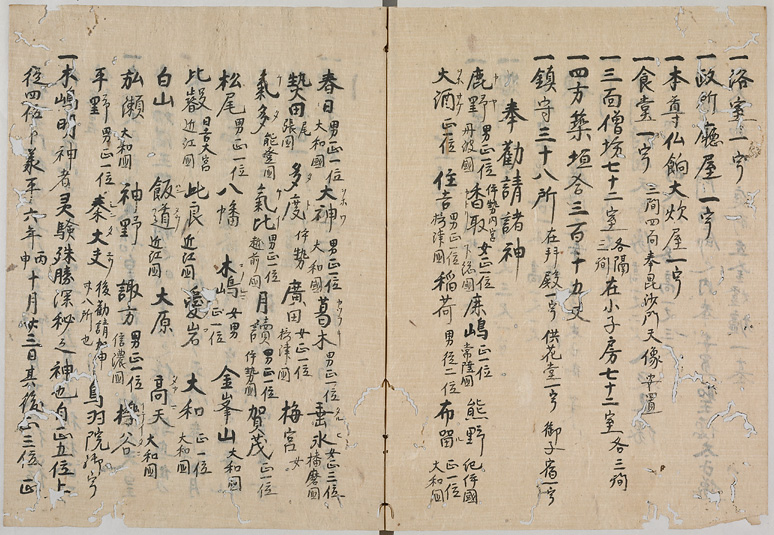 一浴室一宇
一政所廳屋一宇
一本尊仏餉大炊屋一宇
一食堂一宇 三間四面奉毘沙門天像安置
一三面僧坊七十二室 各隔三間 在小子房七十二室 各三間
一四方築垣合三百十九丈
一鎮守三十八所 在拝殿一宇 供花堂一宇 御子宿一宇
奉勧請諸神
鹿野 男正一位 丹波國 香取 女正一位 下総國 鹿嶋 正一位 常陸國 熊野 紀伊國
大酒 正一位 住吉 男正一位 摂津國 稲荷 男従二位 布留 正一位 大和國
春日 男正一位 大和國 大神 男正一位 大和國 葛木 男正一位 垂水 女正三位 播磨國
熱田 尾張國 多度 伊勢 廣田 女正一位 摂津國 梅宮 女
氣多 能登國 氣比 男正一位 越前國 月讀 男正一位 伊勢國 賀茂 正一位
松尾 男正一位 八幡 木嶋 女男 正一位 金峯山 大和國
比叡 近江國 日吉大宮 比良 近江國 愛岩 大和 正一位 大和國
白山 飯道 近江國 大原 高天 大和國
加瀬 大和國 神野 諏方 男正一位 信濃國 樔谷
平野 男正一位 秦大丈 後勧請加神 廿八所也 鳥羽院御宇
一木嶋明神者灵驗殊勝深秘之神也自正五位上
従四位下承平六年 丙申 十月廿三日其後正三位 正